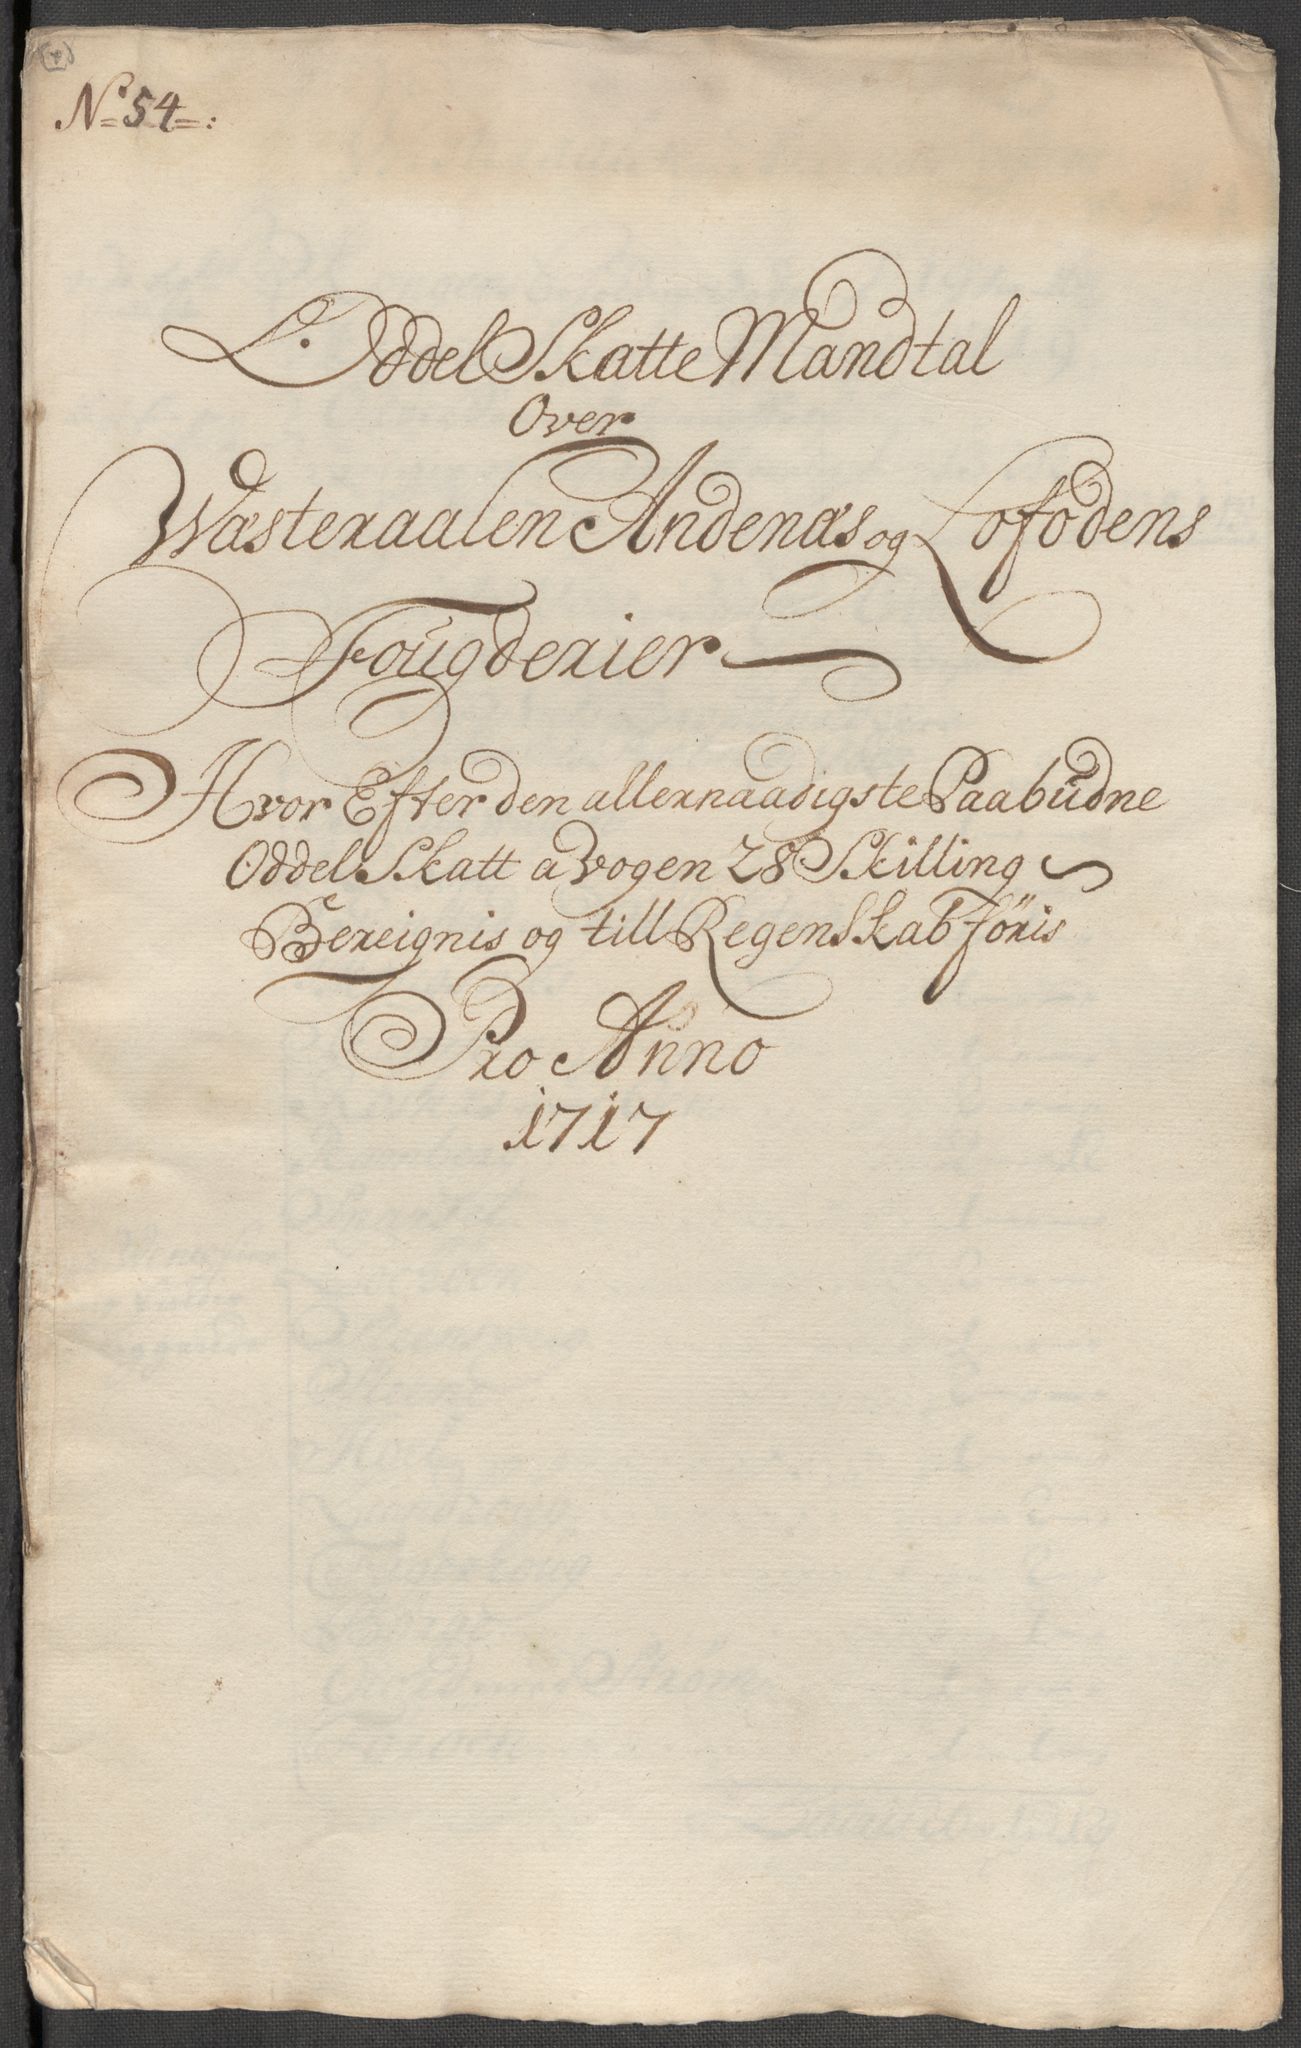 No 54
Oddel Skatte Mandtal
Over
Wæsteraalen Andenæs og Lofodens
Fougderier
Hvor Efter den allernaadigste Paabudne
Oddel Skatt a Vogen 28 Skilling
Bereignis og till Regenskab föris
Pro Anno
1717